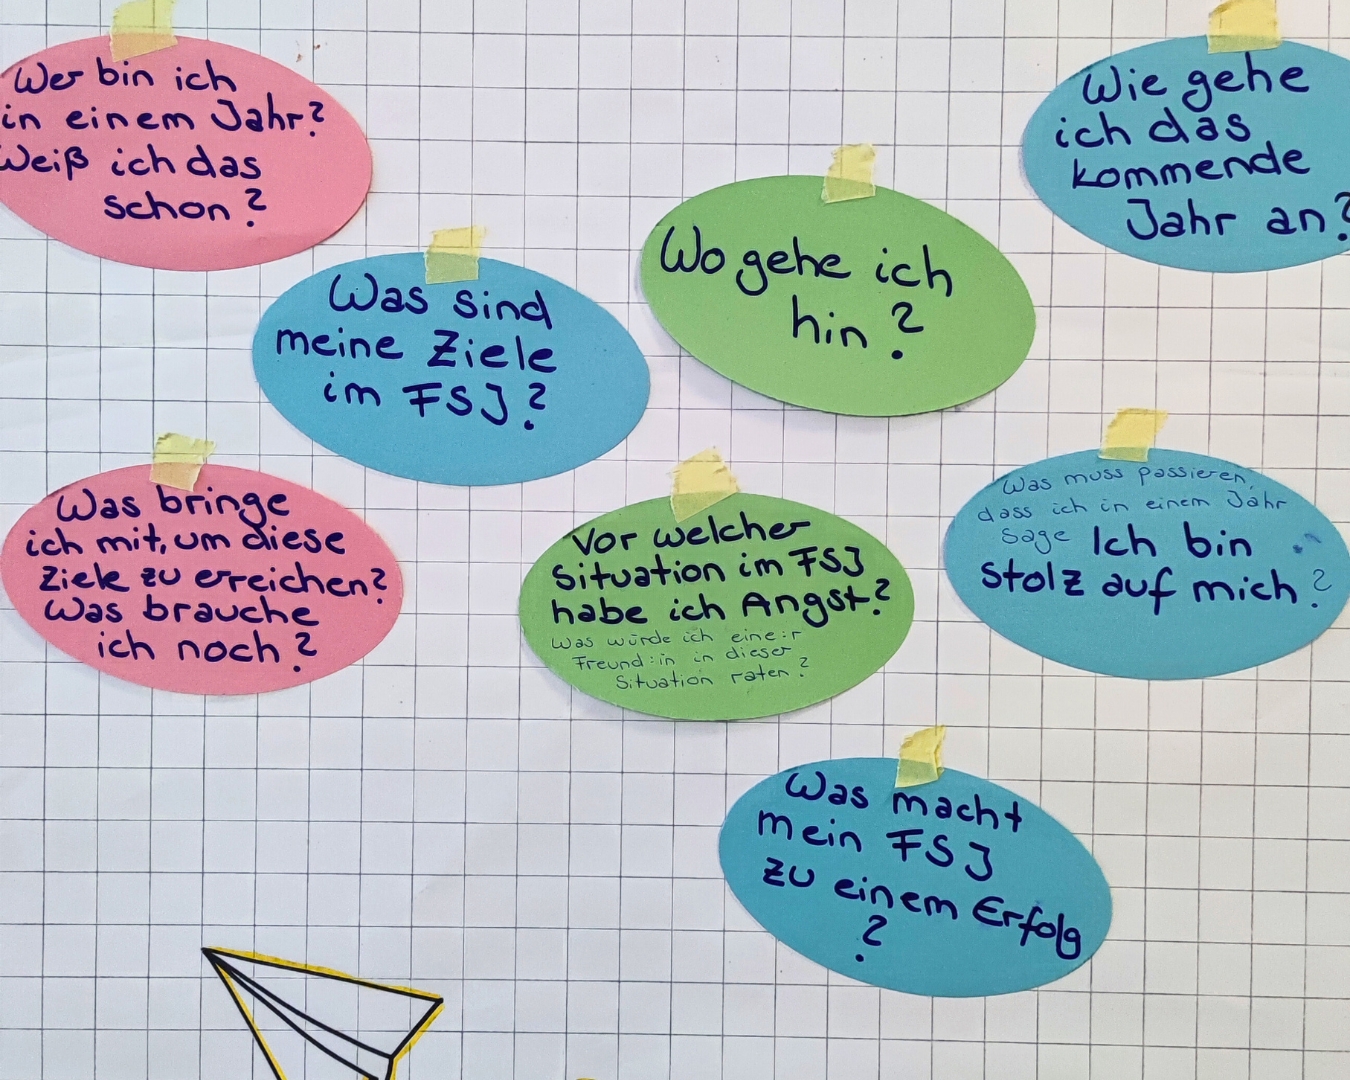 Wer bin ich
in einem Jahr?
Weiß ich das
schon?
Wie gehe
ich das
kommende
Jahr an?
Wo gehe ich
hin?
Was sind
meine Ziele
im FSJ?
Was bringe
ich mit, um diese
Ziele zu erreichen?
Was brauche
ich noch?
Vor welcher
Situation im FSJ
habe ich Angst?
Was würde ich eine:r
Freund:in in dieser
Situation raten?
Was muss passieren,
dass ich in einem Jahr
sage Ich bin
stolz auf mich?
Was macht
mein FSJ
zu einem Erfolg
?